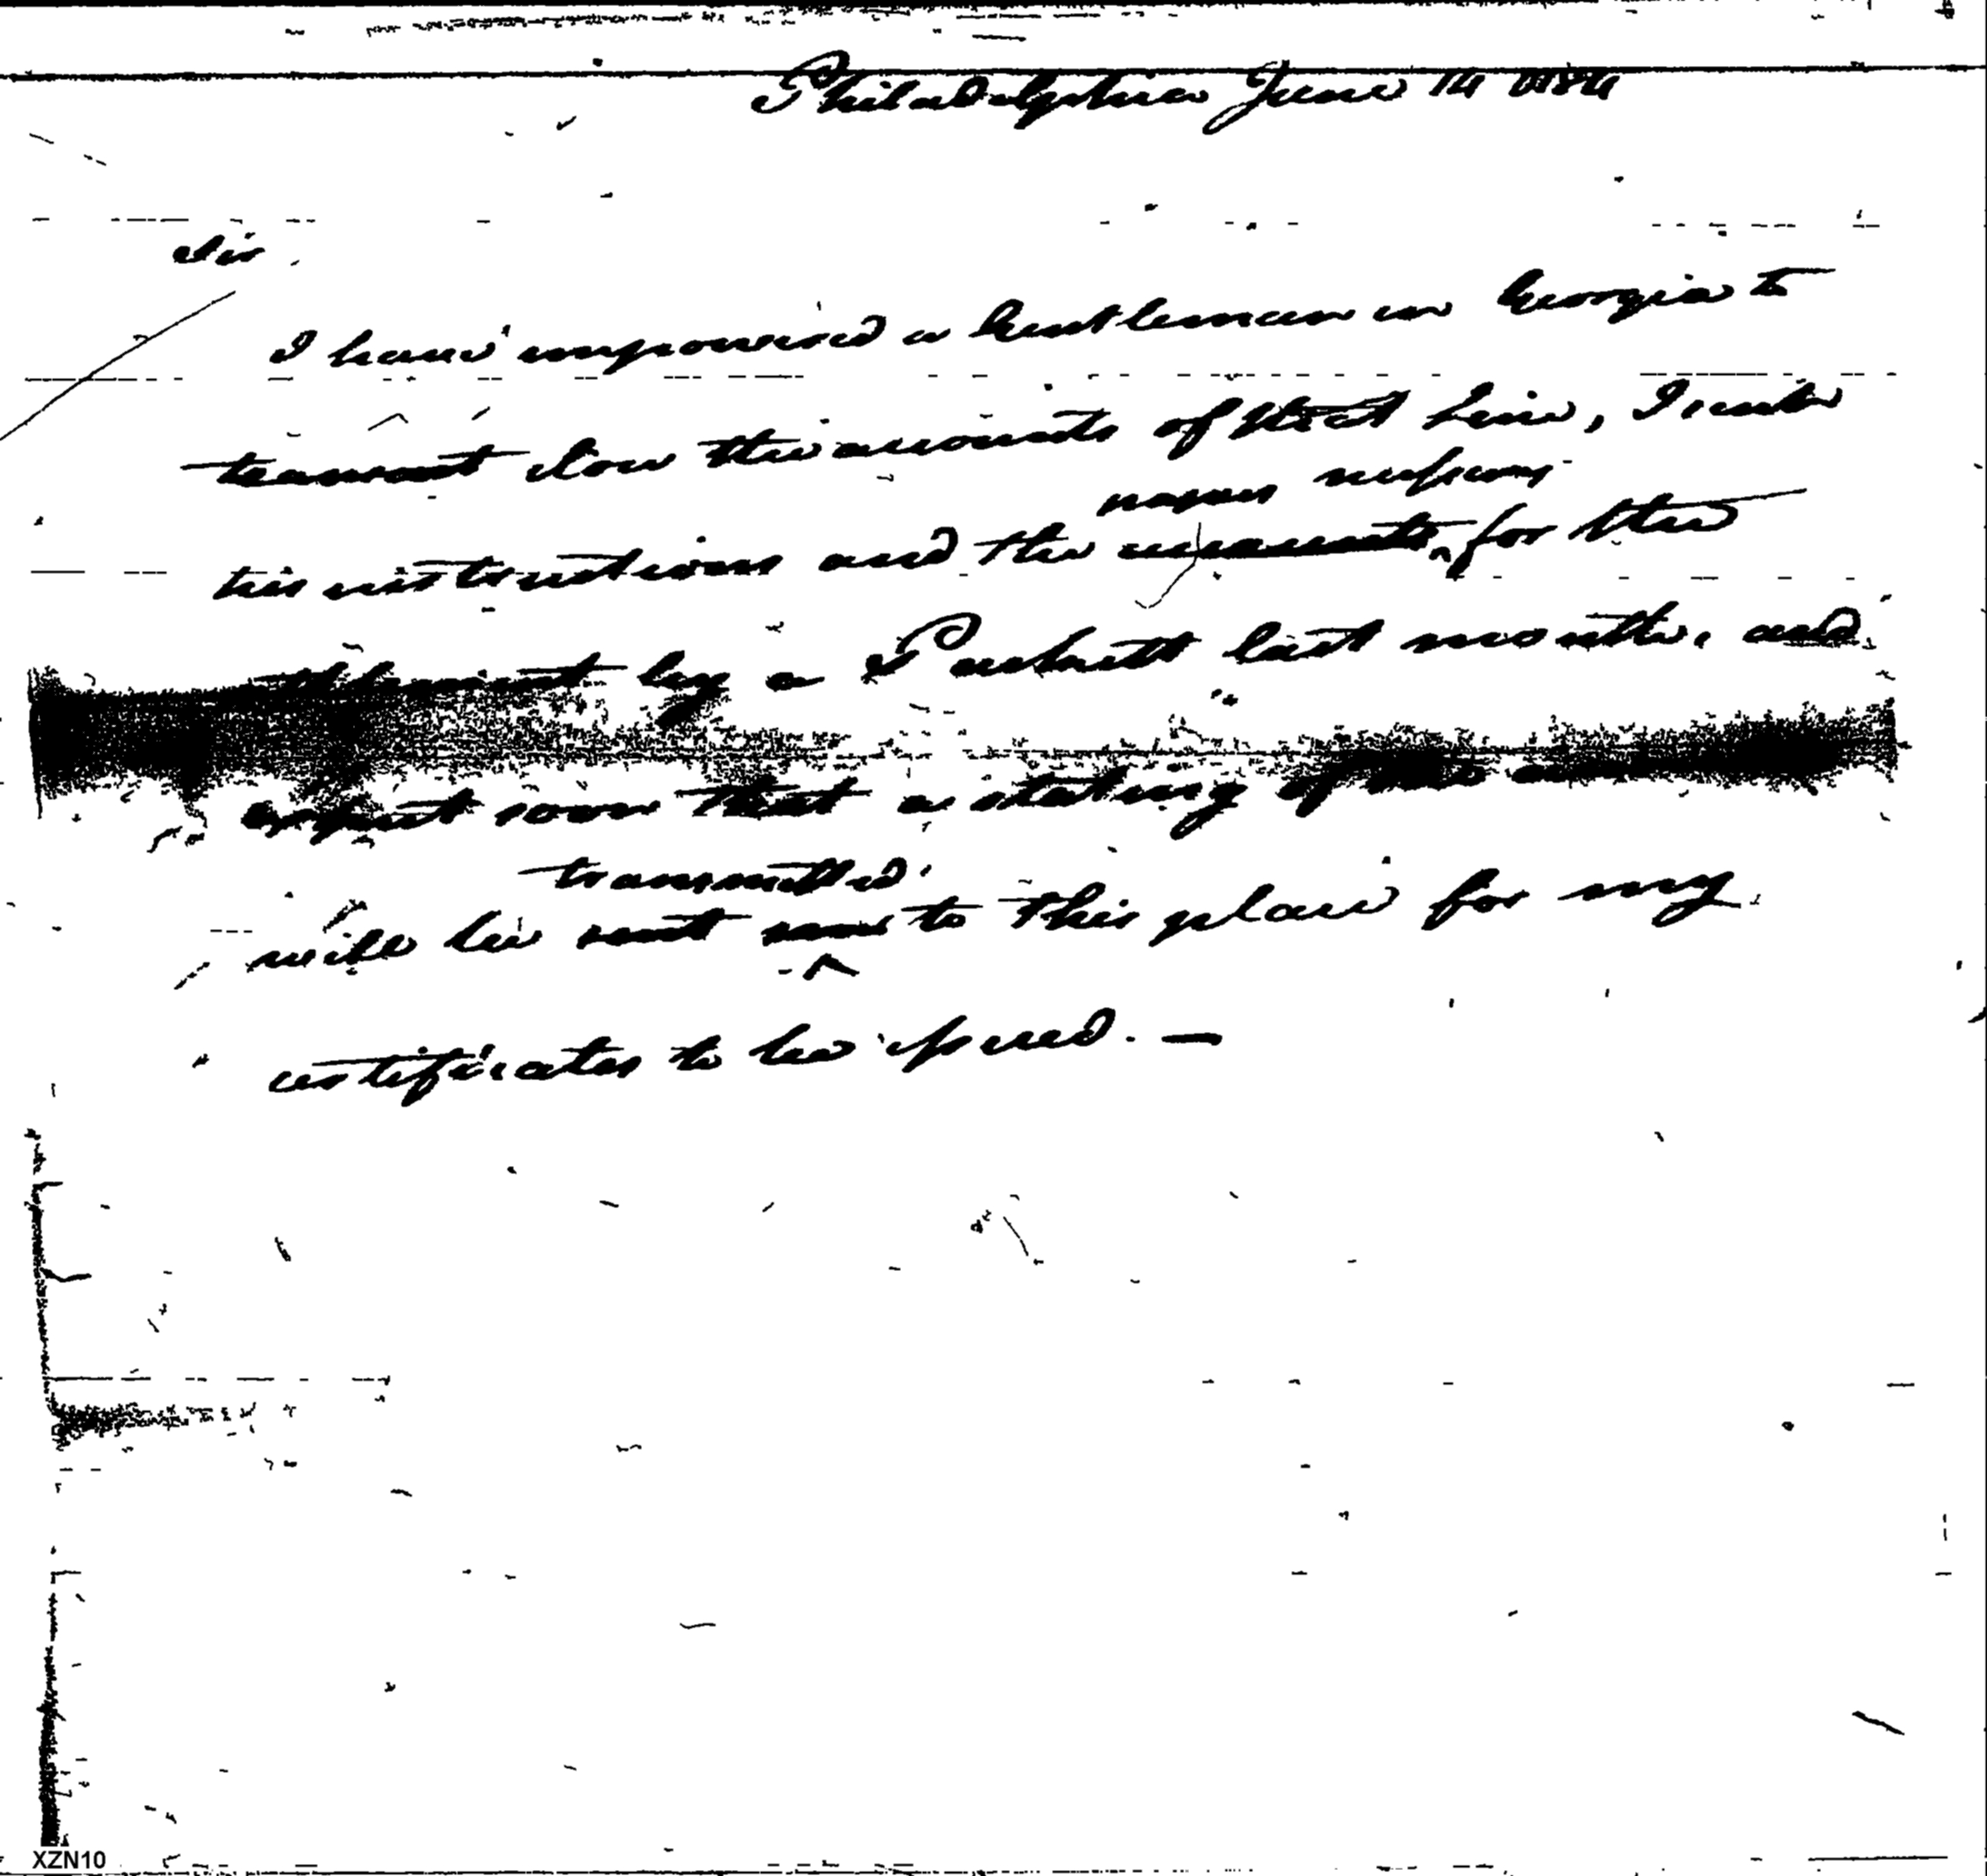 Philadelphia June 14 1786
Sir
I have impowered a Gentleman in Georgia to
transact the accounts of that line, I sent
papers necessary
his instructions and the accounts for the
by a Packett last month, and
expect soon that a stating of
transmitted
will be sent me to this place for my
certificates to be issued. —
XZN10